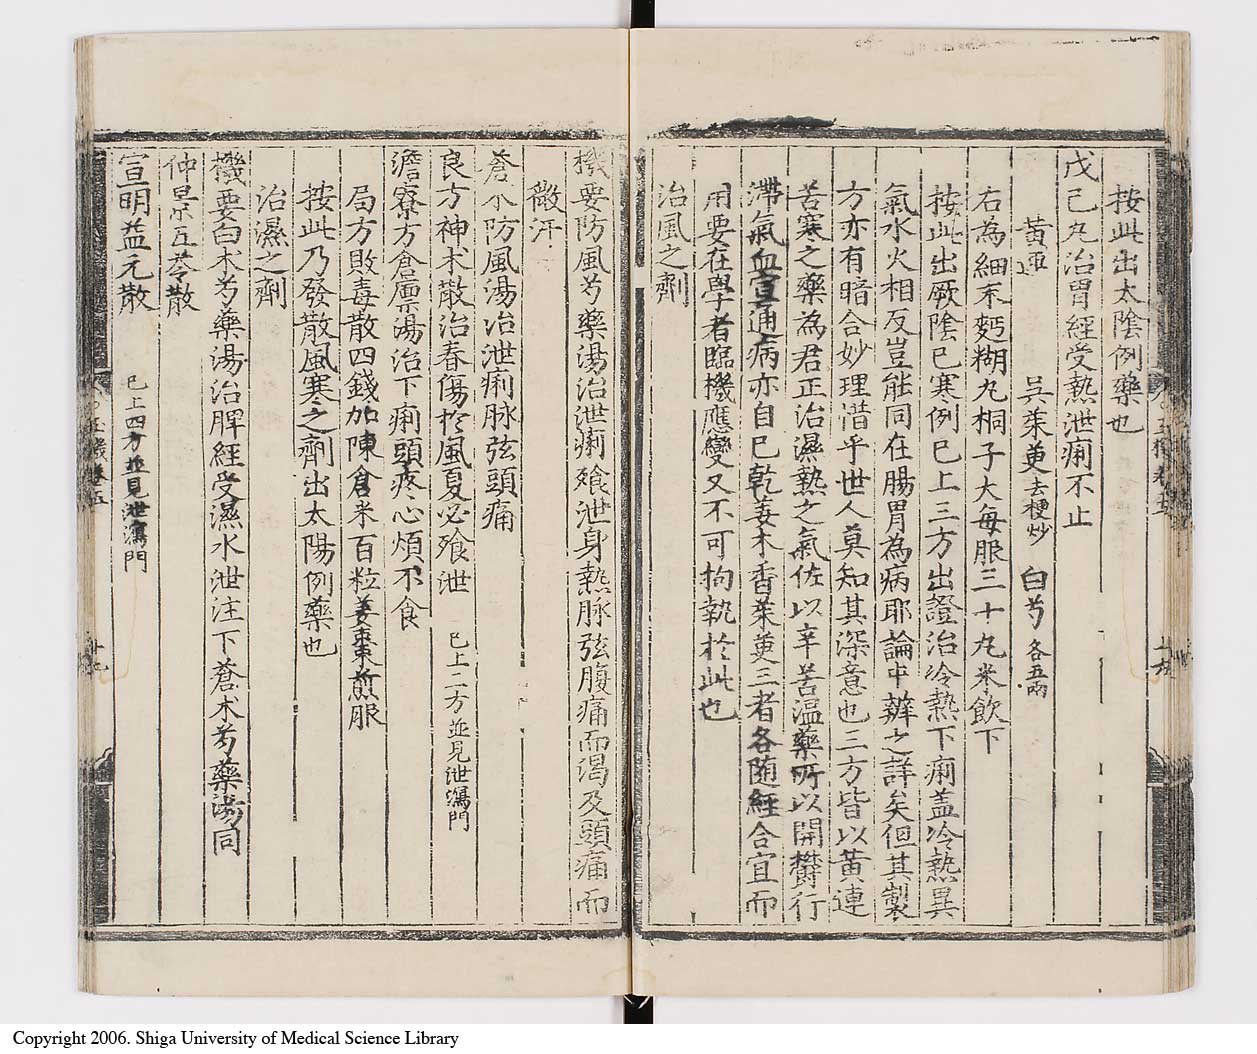 按此出太陰例藥也
戊己丸治胃經受熱泄痢不止
黃連 吳茱萸去梗炒 白芍各五兩
右為細末麪糊丸桐子大每服三十丸米飲下
按此出厥陰已寒例已上三方出證治冷熱下痢盖冷熱異
氣水火相反豈能同在腸胃為病耶論中辨之詳矣但其製
方亦有暗合妙理惜乎世人莫知其深意也三方皆以黃連
苦寒之藥為君正治濕熱之氣佐以辛苦溫藥所以開欝行
滯氣血宣通病亦自已乾姜木香茱萸三者各随經合宜而
用要在學者臨機應變又不可拘執於此也
治風之劑
機要防風芍藥湯治泄痢飱泄身熱脉弦腹痛而渴及頭痛而
微汗
蒼朮防風湯治泄痢脉弦頭痛
良方神术散治春傷於風夏必飱泄 已上二方並見泄瀉門
澹寮方倉廩湯治下痢頭疼心煩不食
局方敗毒散四錢加陳倉米百粒姜棗煎服
按此乃發散風寒之劑出太陽例藥也
治濕之劑
機要白术芍藥湯治脾經受濕水泄注下蒼术芍藥湯同
仲景五苓散
宣明益元散 已上四方並見泄瀉門
十九
Copyright 2006. Shiga University of Medical Science Library